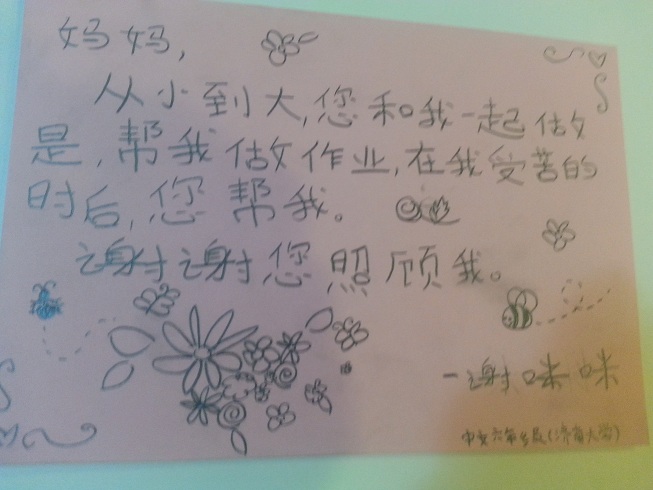 妈妈,
从小到大,您和我一起做
是,帮我做作业,在我受苦的
时后,您帮我。
谢谢您照顾我。
一谢咪咪
中文六年级(济南大学)